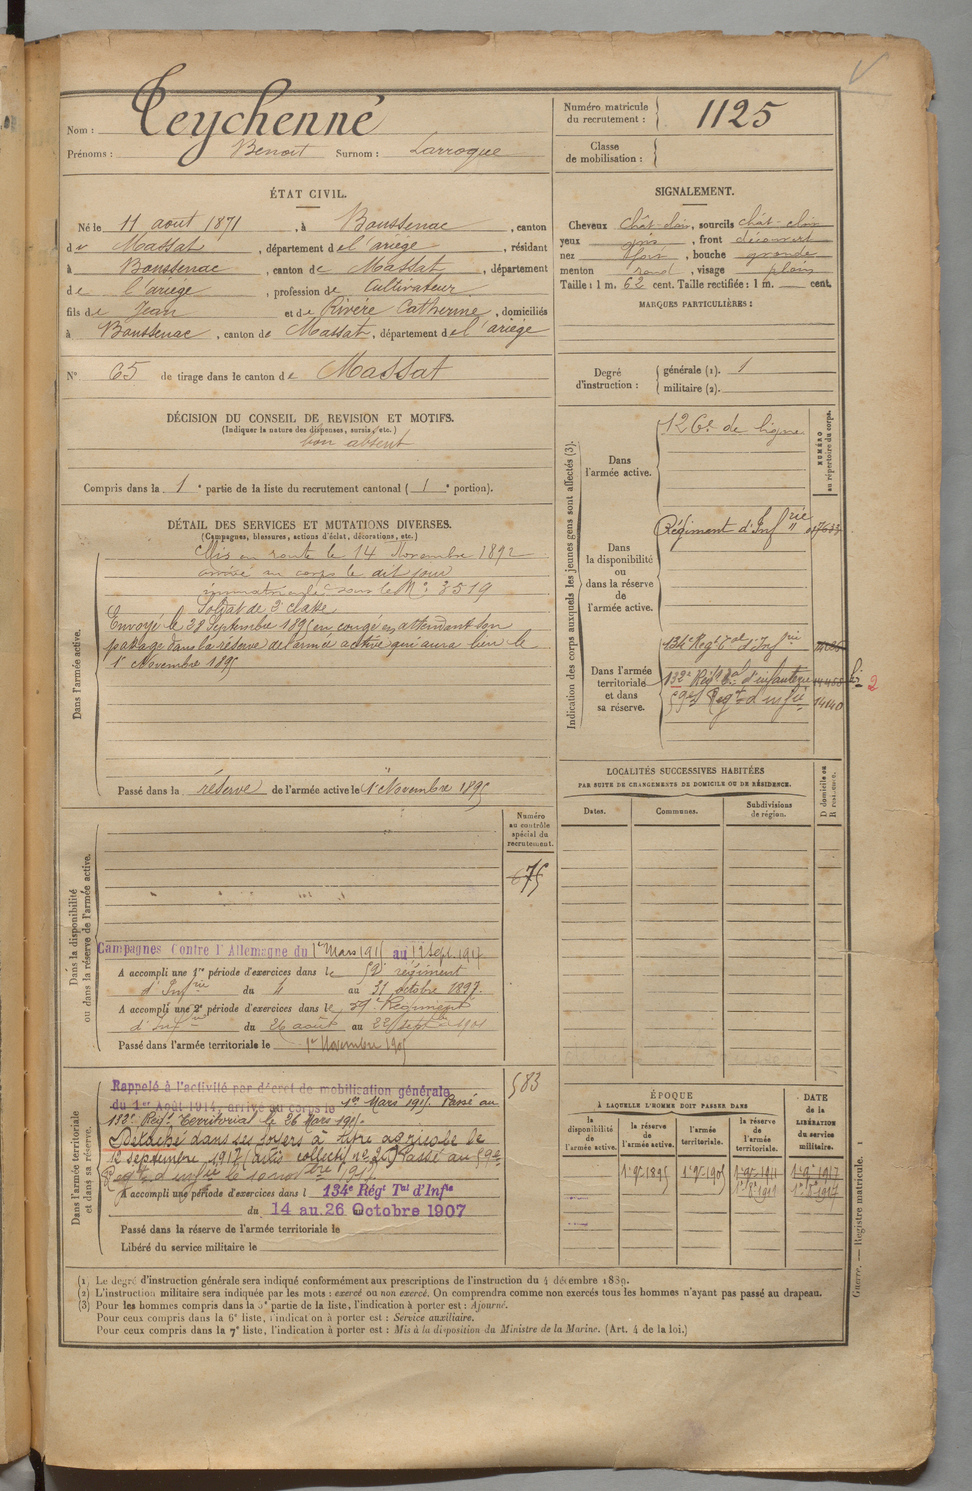 Nom : Teychenné
Prénoms : Benoit Surnom : Larroque
Numéro matricule
du recrutement : 1125
Classe
de mobilisation :
ÉTAT CIVIL.
Né le 11 aout 1871, à Boussenac, canton
du Massat, département de l'ariège, résidant
à Boussenac, canton de Massat, département
de l'ariège, profession de Cultivateur
fils de Jean et de Rivère Catherine, domiciliés
à Boussenac, canton de Massat, département de l'ariège
N° 65 de tirage dans le canton de Massat
SIGNALEMENT.
Cheveux chât-clair, sourcils chât-clair
yeux gris, front découvert
nez fort, bouche grande
menton rond, visage plein
Taille : 1 m. 62 cent. Taille rectifiée : 1 m. — cent.
MARQUES PARTICULIÈRES :
Degré
d'instruction :
générale (1). 1
militaire (2).
DÉCISION DU CONSEIL DE REVISION ET MOTIFS.
(Indiquer la nature des dispenses, sursis, etc.)
bon absent
Compris dans la 1e partie de la liste du recrutement cantonal (1e portion).
DÉTAIL DES SERVICES ET MUTATIONS DIVERSES.
(Campagnes, blessures, actions d'éclat, décorations, etc.)
Dans l'armée active.
Mis en route le 14 Novembre 1892
arrivé au corps le dit jour
immatriculé sous le N° 3519
Soldat de 2e classe
Envoyé le 28 Septembre 1895 en congé en attendant son
passage dans la réserve de l'armée active qui aura lieu le
1er Novembre 1895
Passé dans la réserve de l'armée active le 1er Novembre 1895
Indication des corps auxquels les jeunes gens sont affectés (3).
NUMÉRO
au répertoire du corps.
Dans
l'armée active.
126e de ligne
Dans
la disponibilité
ou
dans la réserve
de
l'armée active.
Régiment d'Infrie
Dans l'armée
territoriale
et dans
sa réserve.
134e Regt Tal d'Infrie
133e Régt Tal d'infanterie 14458 bis 2
59e Regt d'infie 14140
LOCALITÉS SUCCESSIVES HABITÉES
PAR SUITE DE CHANGEMENTS DE DOMICILE OU DE RÉSIDENCE.
Dates.
Communes.
Subdivisions
de région.
D domicile ou
R résidence.
Dans la disponibilité
ou dans la réserve de l'armée active.
Numéro
au contrôle
spécial du
recrutement.
675
Campagnes Contre l'Allemagne du 1er Mars 1915 au 12 Sept. 1917
A accompli une 1re période d'exercices dans le 59e régiment
d'Infrie du 4 au 31 octobre 1897.
A accompli une 2e période d'exercices dans le 59e Régiment
d'Infrie du 26 août au 22 septbre 1901
Passé dans l'armée territoriale le 1er Novembre 1905
583
Dans l'armée territoriale
et dans sa réserve.
Rappelé à l'activité par décret de mobilisation générale
du 1er Août 1914, arrivé au corps le 1er Mars 1915. Passé au
133e Régt Territorial le 26 Mars 1915.
Détaché dans ses foyers à titre agricole le
12 septembre 1917 Passé au 59e
Regt d'infie
A accompli une période d'exercices dans l 134e Régt Tal d'Infie
du 14 au 26 Octobre 1907
Passé dans la réserve de l'armée territoriale le
Libéré du service militaire le
ÉPOQUE
À LAQUELLE L'HOMME DOIT PASSER DANS
la
disponibilité
de
l'armée active.
la réserve
de
l'armée active.
l'armée
territoriale.
la réserve
de
l'armée
territoriale.
DATE
de la
LIBÉRATION
du service
militaire.
1er 9bre 1895 1er 9bre 1905 1er 9bre 1911 1er 9bre 1917
1er 8bre 1911 1er 8bre 1917
(1) Le degré d'instruction générale sera indiqué conformément aux prescriptions de l'instruction du 4 décembre 1889.
(2) L'instruction militaire sera indiquée par les mots : exercé ou non exercé. On comprendra comme non exercés tous les hommes n'ayant pas passé au drapeau.
(3) Pour les hommes compris dans la 5e partie de la liste, l'indication à porter est : Ajourné.
Pour ceux compris dans la 6e liste, l'indication à porter est : Service auxiliaire.
Pour ceux compris dans la 7e liste, l'indication à porter est : Mis à la disposition du Ministre de la Marine. (Art. 4 de la loi.)
Guerre. — Registre matricule. 1